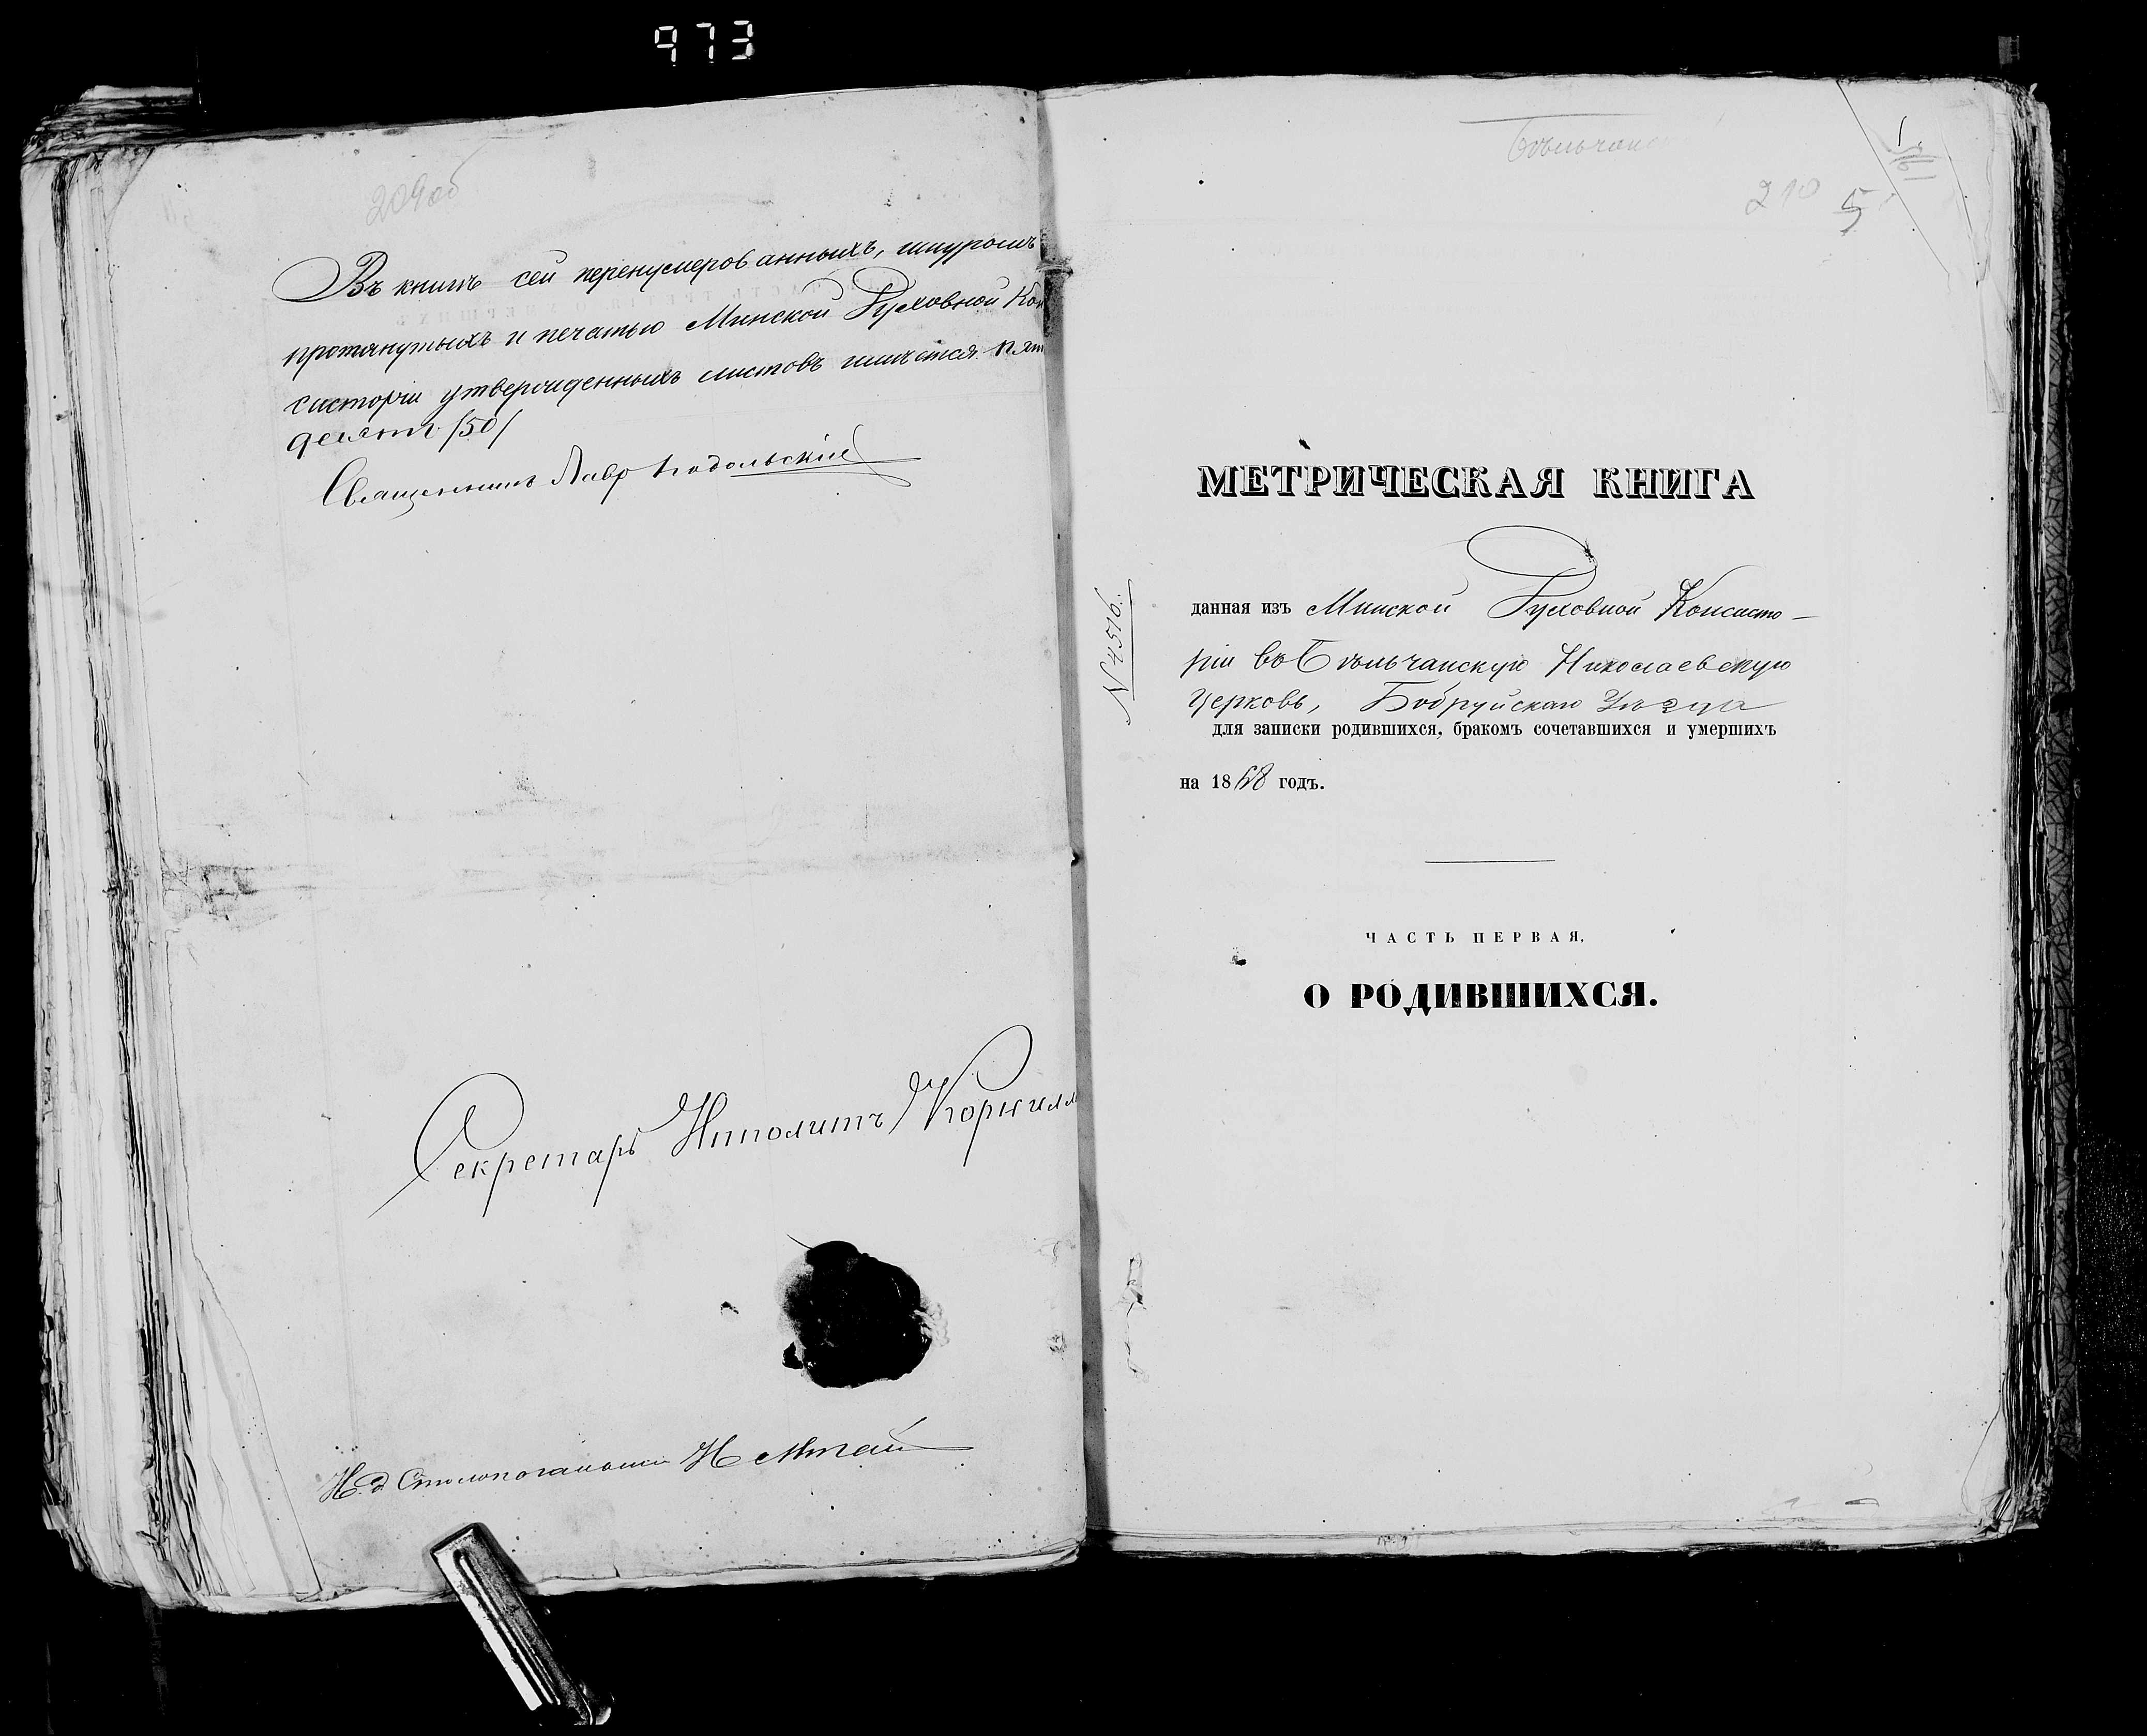 973
209об
Въ книгѣ сей перенумерованныхъ, шнуромъ
протянутыхъ и печатью Минской Духовной Кон
систоріи утвержденныхъ листовъ имѣется пят
десятъ /50/
Священникъ Лавр Подольскій
Секретарь Ипполитъ Корнилл
И. д. Столоначальника Н
Бѣльчанс
210 5
МЕТРИЧЕСКАЯ КНИГА
№ 4516.
данная изъ Минской Духовной Консисто-
ріи въ Бѣльчанскую Николаевскую
Церковь, Бобруйскаго Уѣзда
для записки родившихся, бракомъ сочетавшихся и умершихъ
на 1868 годъ.
ЧАСТЬ ПЕРВАЯ.
О РОДИВШИХСЯ.